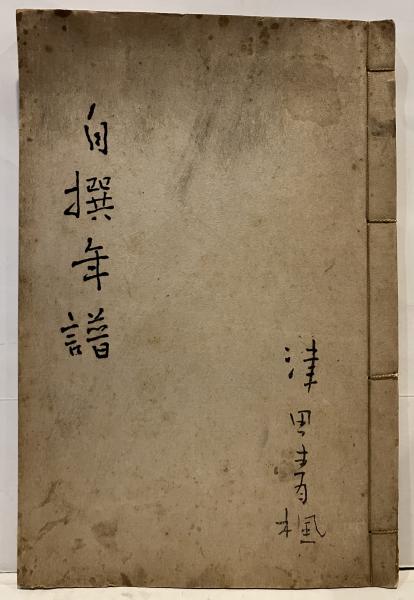 自撰年譜
津田青楓